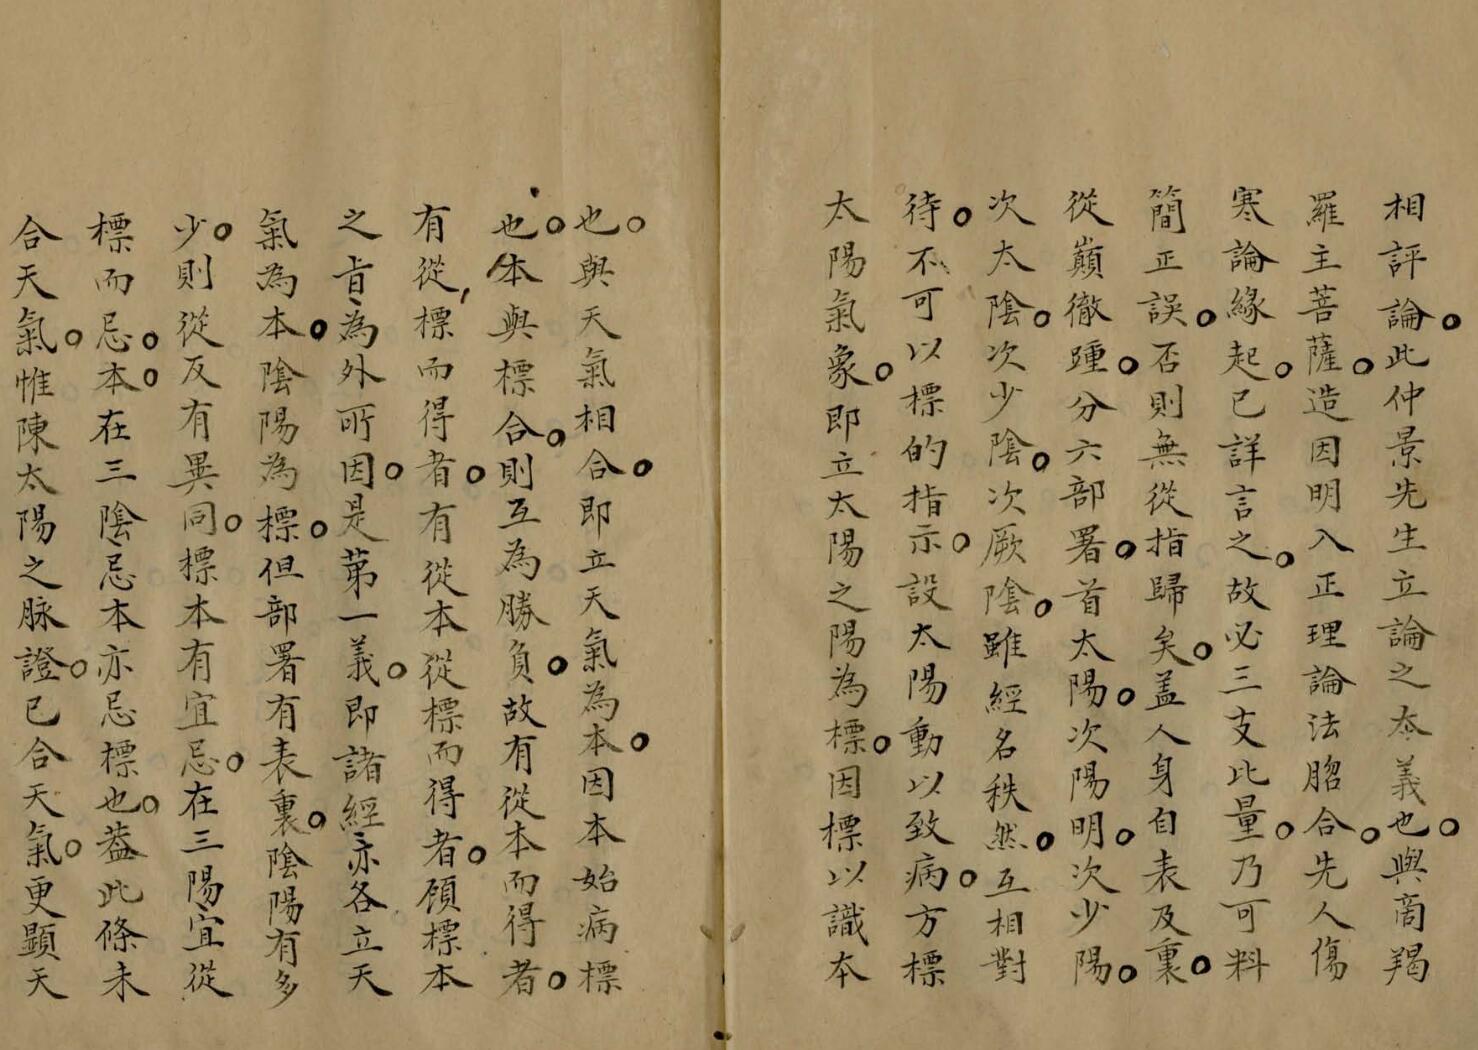 相評論。此仲景先生立論之夲義也。與商羯
羅主菩薩。造因明入正理論法脗合。先人傷
寒論緣起。已詳言之。故必三支比量。乃可料
簡正誤。否則無從指歸矣。蓋人身自表及裏。
從巔徹踵。分六部署。首太陽。次陽明。次少陽。
次太陰。次少陰。次厥陰。雖經名秩然。互相對
待。不可以標的指示。設太陽動以致病。方標
太陽氣象。即立太陽之陽為標。因標以識夲
也。與天氣相合。即立天氣為本。因本始病標
也。本與標合。則互為勝負。故有從本而得者。
有從標而得者。有從本從標而得者。頎標本
之旨為外所因。是苐一義。即諸經亦各立天
氣為本。陰陽為標。但部署有表裏。陰陽有多
少。則從反有異同。標本有宜忌。在三陽宜從
標而忌。本。在三陰忌本亦忌標也。蓋此條未
合天氣。惟陳太陽之脉證。已合天氣。更顯天